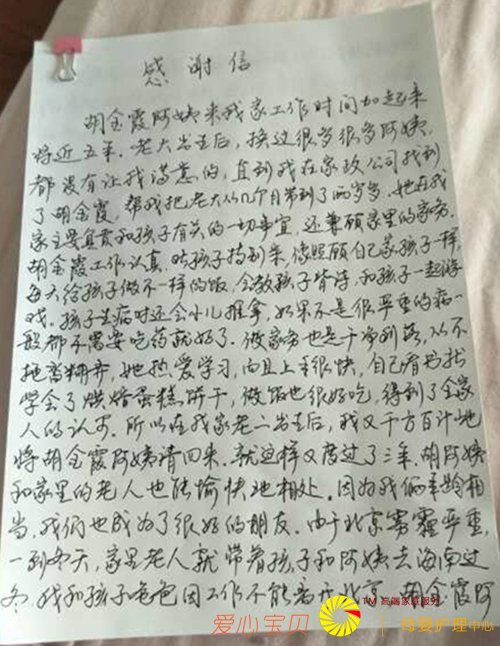 感谢信
胡金霞阿姨来我家工作时间加起来
将近五年.老大出生后,换过很多很多阿姨,
都没有让我满意的,直到我在家政公司找到
了胡金霞,帮我把老大从几个月带到了两岁多.她在我
家主要负责和孩子有关的一切事宜,还兼顾家里的家务.
胡金霞工作认真.对孩子特别亲,像照顾自己家孩子一样,
每天给孩子做不一样的饭,会教孩子背诗,和孩子一起游
戏.孩子生病时还会小儿推拿,如果不是很严重的病一
般都不需要吃药就好了.做家务也是干净利落,从不
拖
她热爱学习,而且上手很快,自己看书就
学会了烘焙蛋糕饼干,做饭也很好吃,得到了全家
人的认可.所以在我家老二出生后,我又千方百计地
将胡金霞阿姨请回来.就这样又度过了三年.胡阿姨
和家里的老人也能愉快地相处.因为我俩年龄相
当,我们也成为了很好的朋友.由于北京雾霾严重,
一到冬天,家里老人就带着孩子和阿姨去海南过
冬.我和孩子爸爸因工作不能离开北京.胡金霞阿
爱心宝贝
TM 高端家庭服务
母婴护理中心